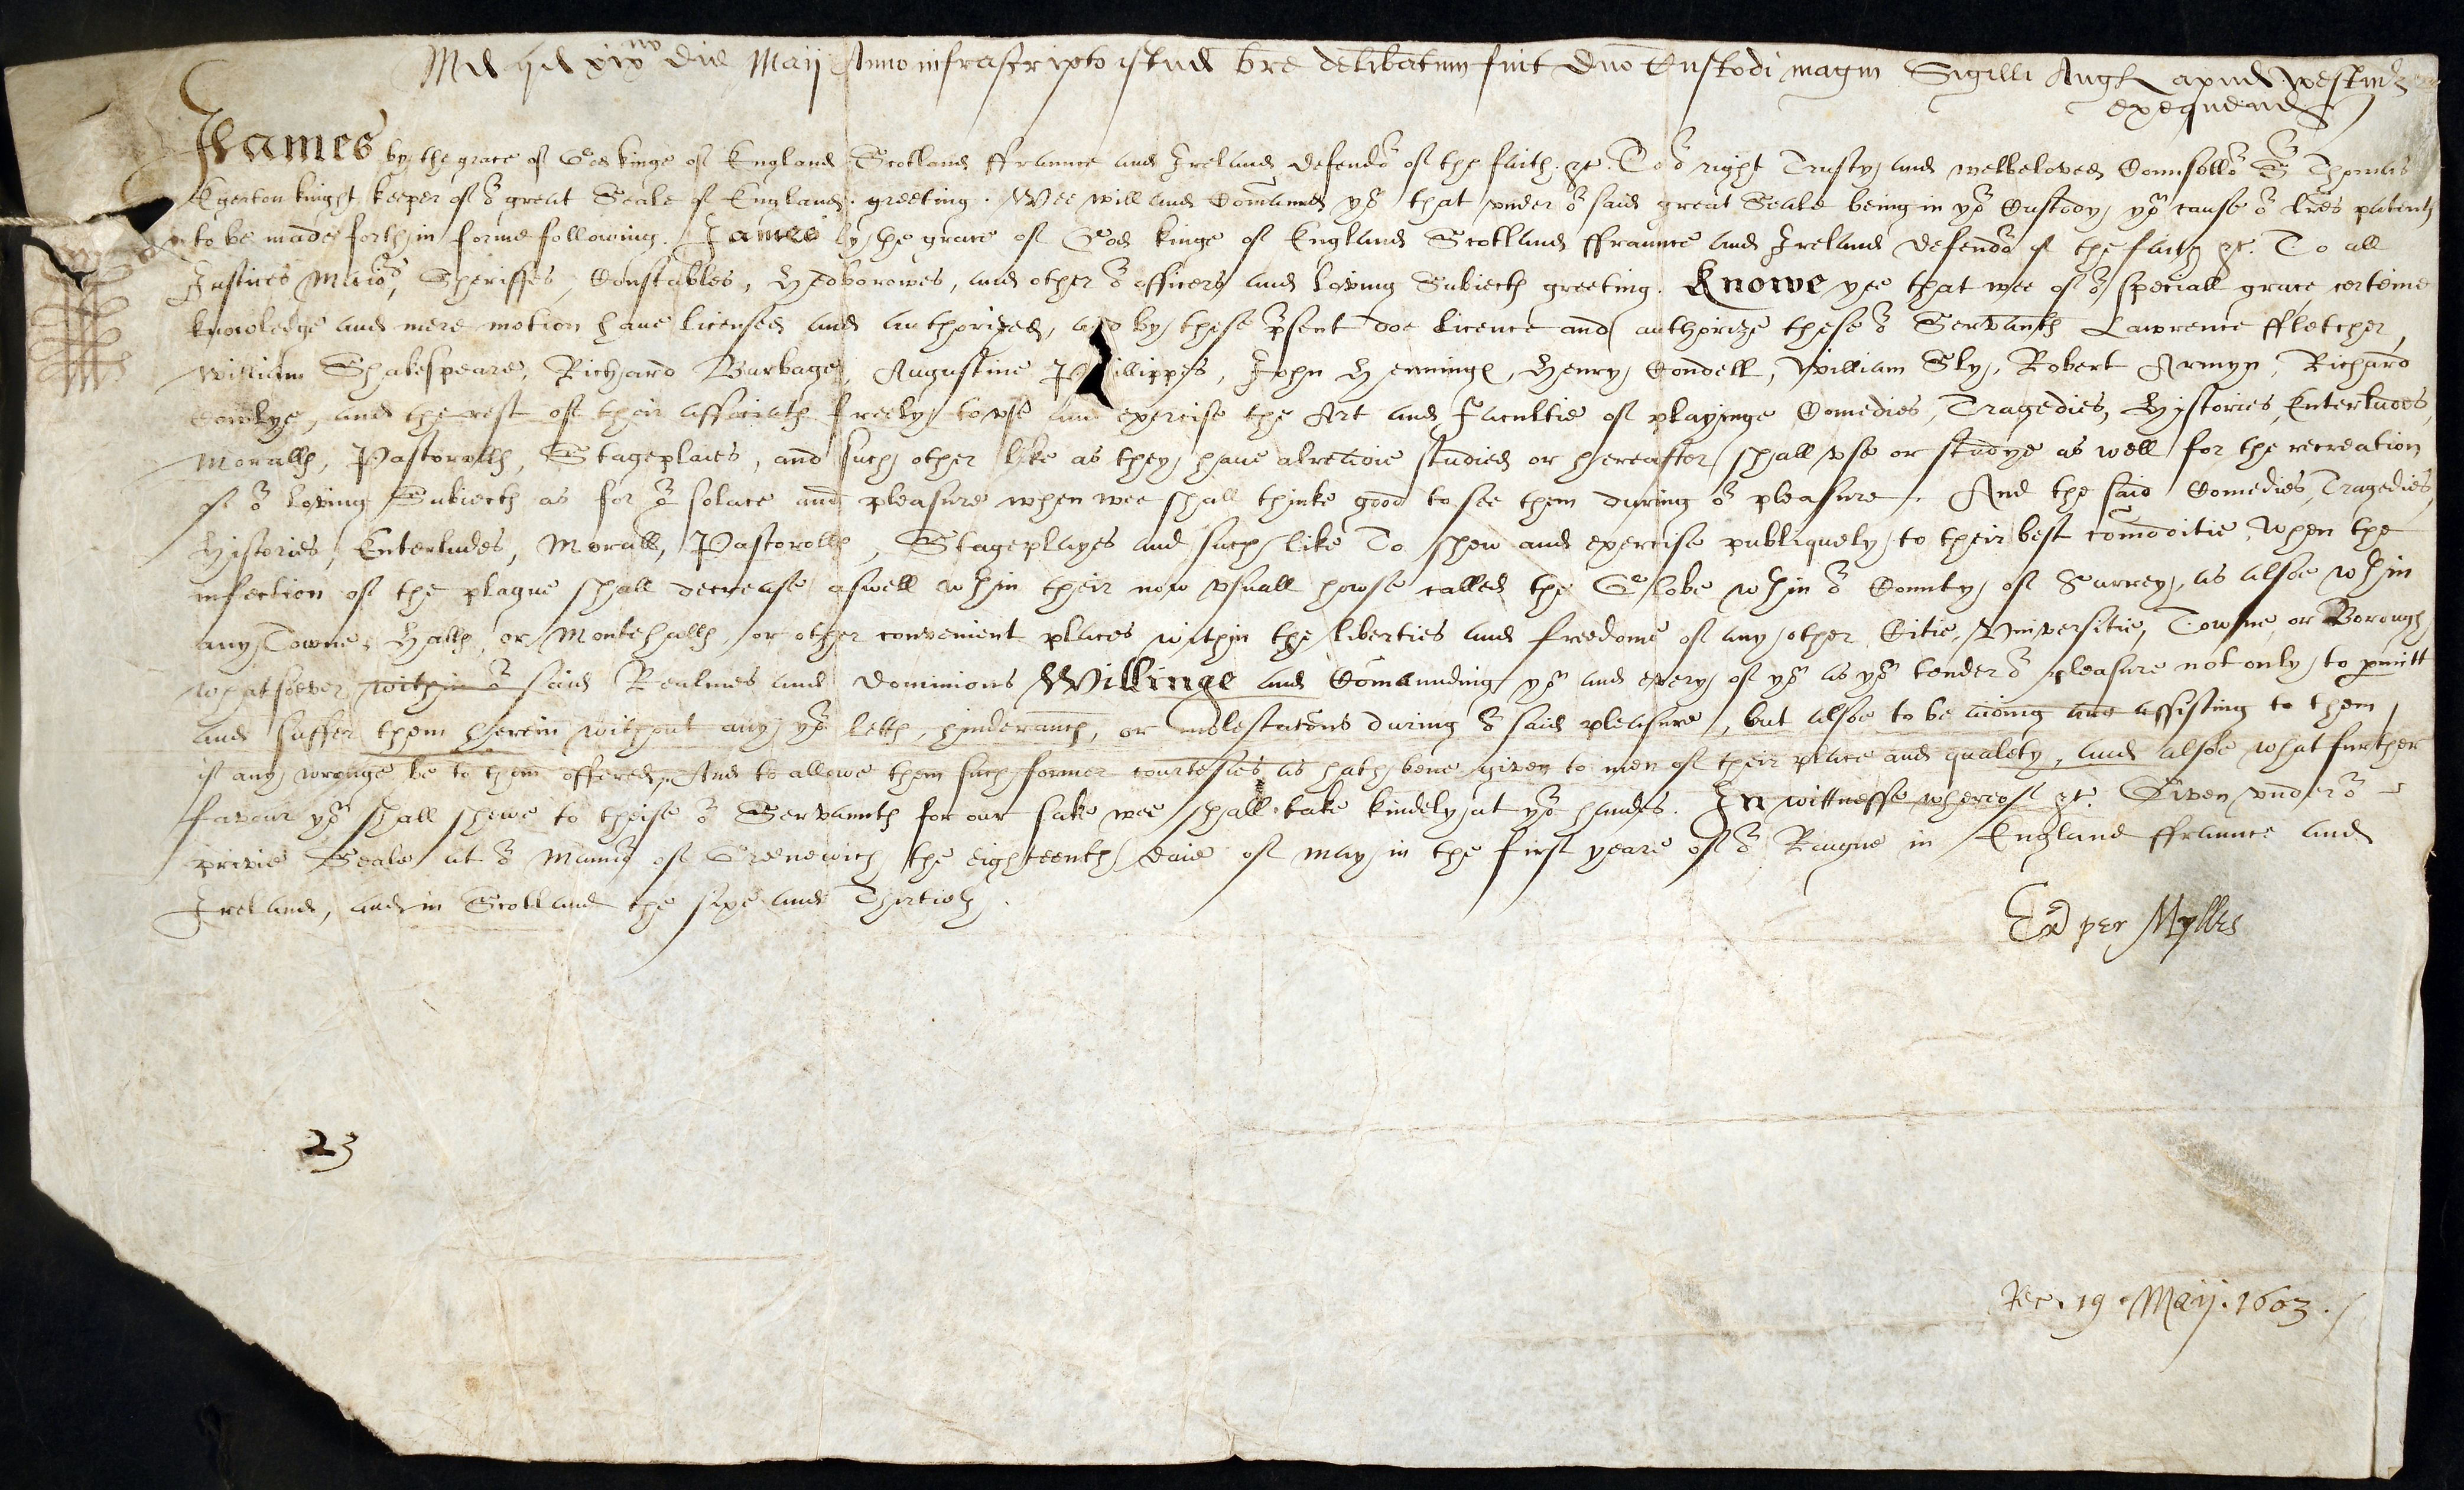 Md qd xix no die Maij Anno infrascripto istud bre deliberatum fuit Dno Custodi magni Sigilli Angl apud Westm
exequend
James by the grace of God kinge of England Scotland ffraunce and Ireland defendor of the faith &c. To or right Trusty and welbeloved Counsellor Sr Thomas
Egerton knight keeper of or great Seale of England greeting. Wee will and Comaund yo that vnder or said great Seale being in yor Custody yo cause or lres patents
to be made forth in forme following. James by the grace of God kinge of England Scotland ffraunce and Ireland defendor of the faith &c. To all
Justices Maiors, Sheriffes, Constables, Hedborowes, and other or officers and loving Subiects greeting. Knowe yee that wee of or speciall grace, certeine
knowledge and mere motion haue licensed and authorized, and by these psents doe licence and authorize these or Servants Lawrence ffletcher,
William Shakespeare, Richard Burbage, Augustine Phillippes, John Hennings, Henry Condell, William Sly, Robert Armyn, Richard
Cowlye, and the rest of their associats freely to vse and exercise the Art and Facultie of playinge Comedies, Tragedies, Hystories, Enterludes,
Moralls, Pastoralls, Stageplaies, and such other like as they haue alreadie studied or hereafter shall vse or studye as well for the recreation
of or loving Subiects as for or solace and pleasure when wee shall thinke good to see them during or pleasure. And the said Comedies, Tragedies,
Histories, Enterludes, Morall, Pastoralls, Stageplayes and such like To shew and exercise publiquely to their best comoditie, when the
infection of the plague shall decrease aswell wthin their now vsuall howse called the Globe wthin or County of Surrey, as alsoe wthin
any Towne, Halls, or Moutehalls, or other convenient places within the liberties and freedome of any other Citie, Vniversitie, Towne, or Borough
whatsoever within or said Realmes and dominions Willinge and Comaunding yo and every of yo as yo tender or pleasure not only to pmitt
and suffer them herein without any yor letts, hinderancs, or molestacons during or said pleasure, but alsoe to be aiding and assisting to them,
if any wronge be to them offered, And to allowe them such former courtesies as hath bene given to men of their place and qualety, and alsoe what further
favour yo shall shewe to theise or Servaunts for our sake wee shall take kindely at yor handes. In wittnesse whereof &c. Given vnder or
privie Seale at or Mannor of Greenewich the eighteenth daie of May in the first yeare of or Raigne in England ffraunce and
Ireland, and in Scotland the sixe and Thirtieth.
Ex per Mylles
23
Rec. 19 Maij. 1603.